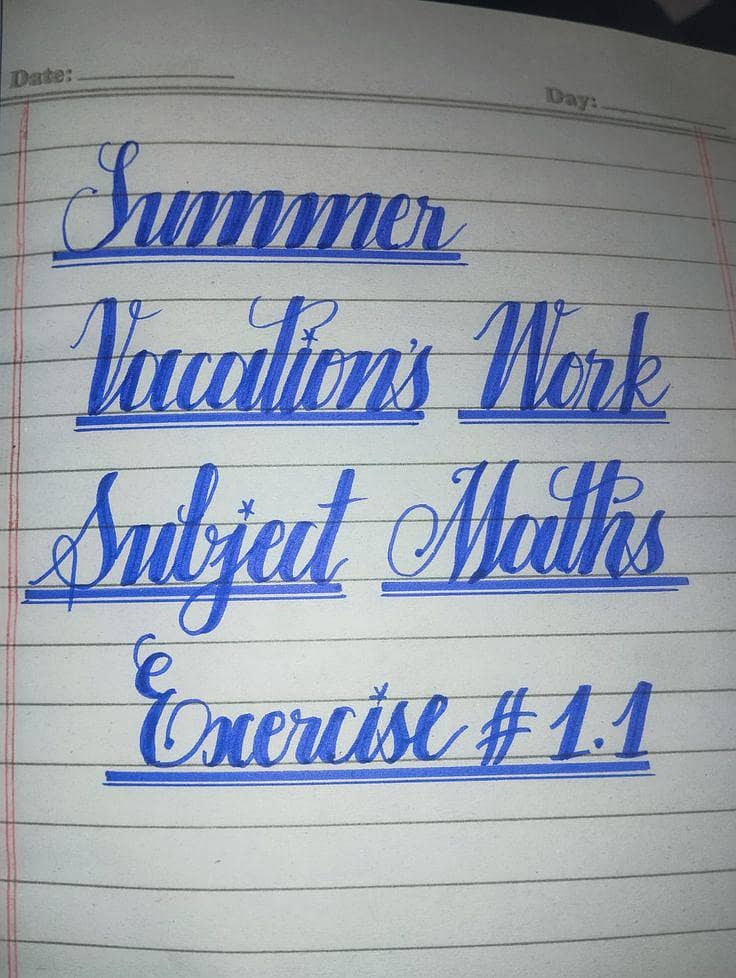 Date:
Day:
Summer
Vacation's Work
Subject Maths
Exercise # 1.1